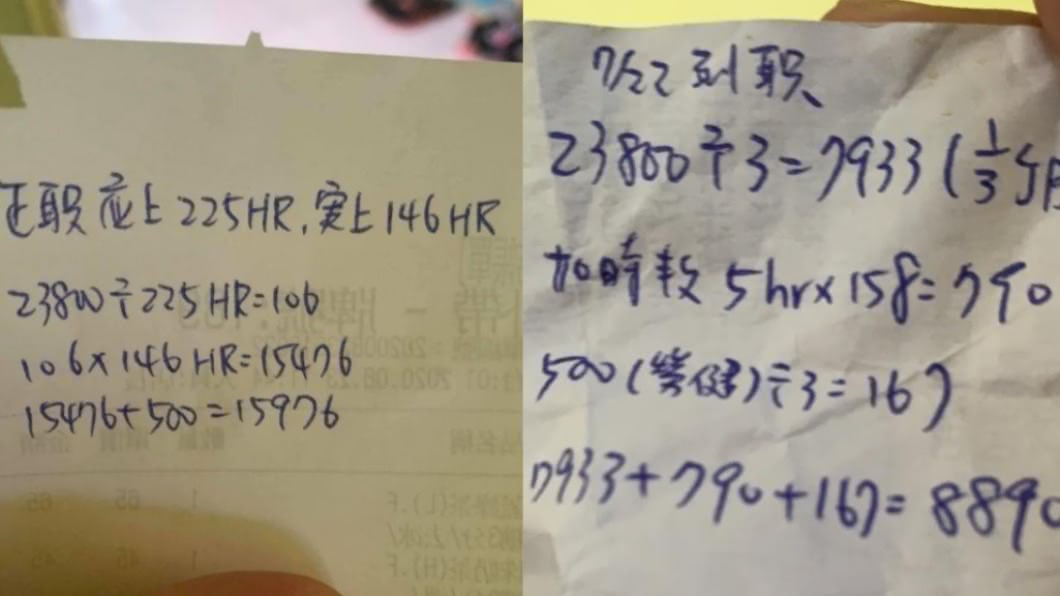 正职应上225HR,实上146HR
23800÷225HR=106
106×146HR=15476
15476+500=15976
7/22到职
23800÷3=7933(1/3个月
加時数 5hr×158=790
500(劳健)÷3=167
7933+790+167=8890